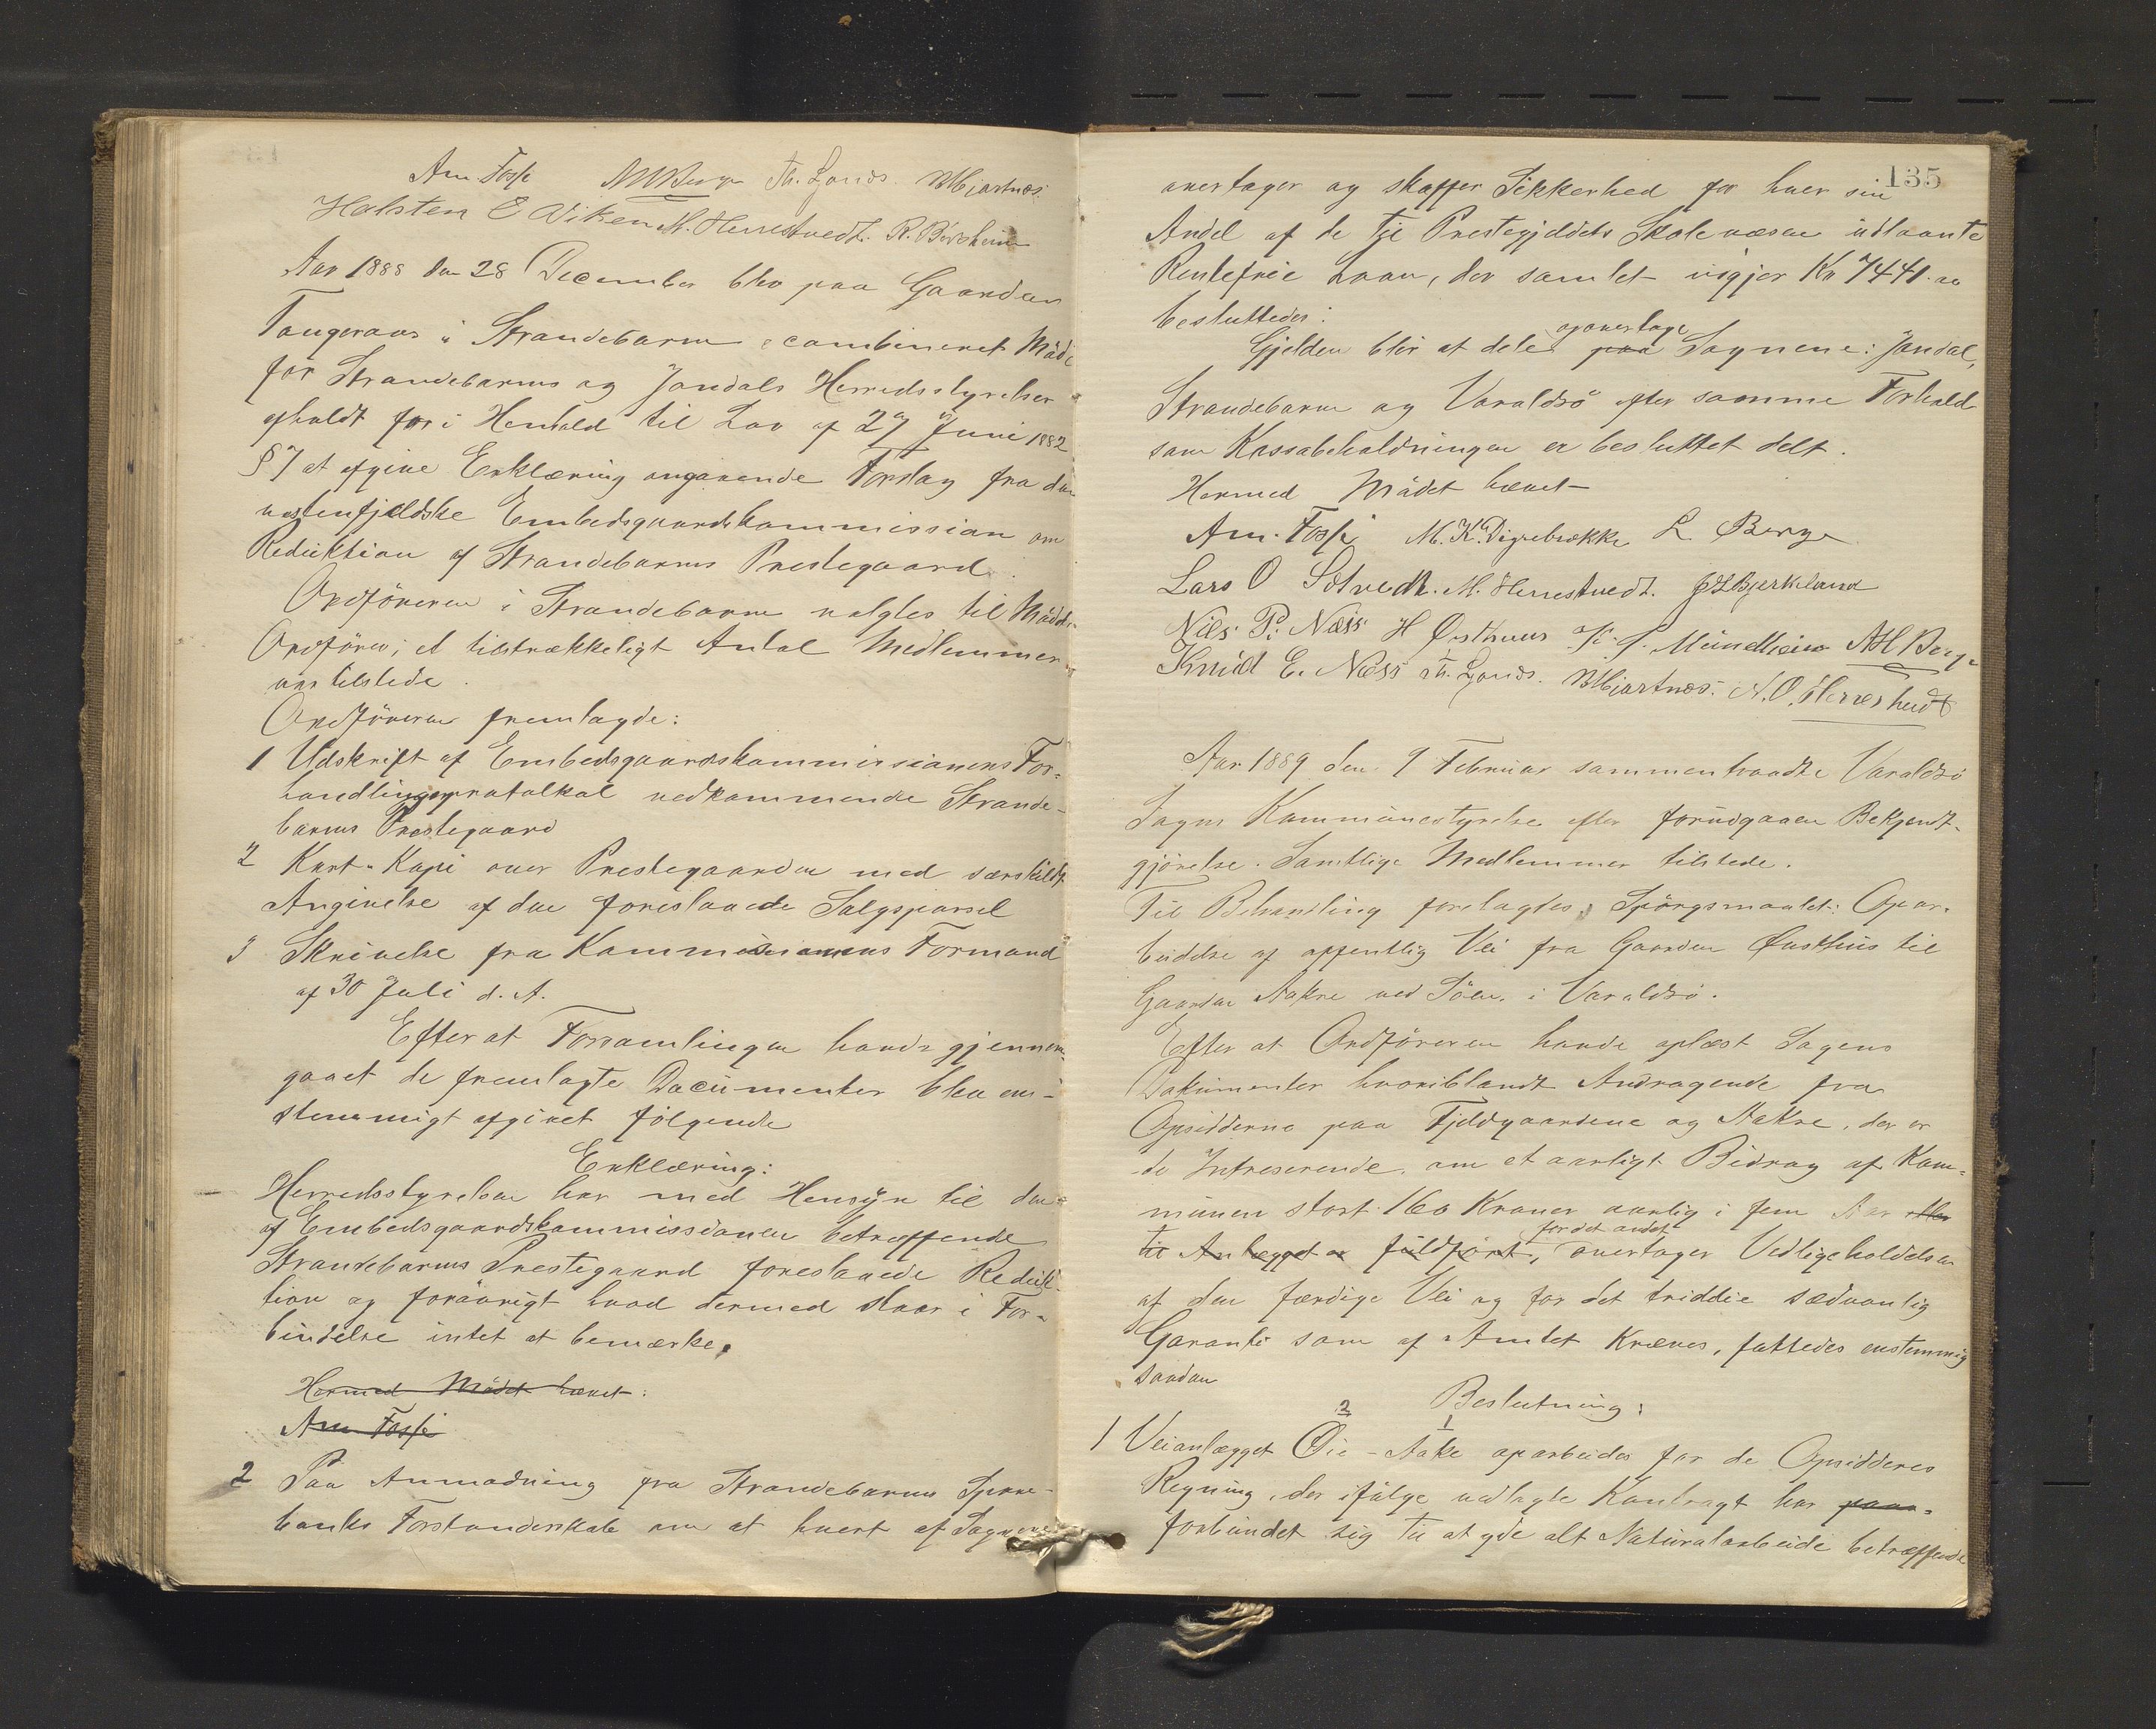 Am. Fosse AHBerge Th. Ljonés. MHjartnæs.
Halsten E Viken M. Herrestvedt. R. Bergheim
Aar 1888 den 28 December blev paa Gaarden
Tangeraas i Strandebarm combineret Möde
for Strandebarms og Jondals Herredsstyrelser
afholdt for i Henhold til Lov af 27 Juni 1882
§ 7 at afgive Erklæring angaaende Forslag fra den
vestenfjeldske Embedsgaardskommission om
Reduktion af Strandebarms Prestegaard.
Ordföreren i Strandebarm valgtes til Mödets
Ordförer; et tilstrækkeligt Antal Medlemmer
var tilstede.
Ordföreren fremlagde:
1 Udskrift af Embedsgaardskommissionens For-
handlingsprotokol vedkommende Strande-
barms Prestegaard
2 Kart-Kopi over Prestegaarden med særskildt
Angivelse af den foreslaaede Salgsparsel
3 Skrivelse fra Kommissionens Formand
af 30 Juli d. A.
Efter at Forsamlingen havde gjennem-
gaaet de fremlagte Documenter blev en-
stemmigt afgivet følgende
Erklæring:
Herredsstyrelsen har med Hensyn til den
af Embedsgaardskommissionen betræffende
Strandebarms Prestegaard foreslaaede Reduk-
tion og foröovrigt hvad dermed staar i For-
bindelse intet at bemærke.
Hermed Mödet hævet.
Am Fosse
2 Paa Anmodning fra Strandebarms Spare-
banks Forstanderskab om at hvert af Sognene
135
overtager og skaffer Sikkerhed for hver sin
Andel af de til Prestegjeldets Skolevæsen udlaante
Rentefrie Laan, der samlet udgjør Kr 7441.00
besluttedes:
Gjelden blir at deles paa og overtage Sognene: Jondal,
Strandebarm og Varaldsö efter samme Forhold
som Kassabeholdningen er besluttet delt.
Hermed Mödet hævet
Am. Fosse M. K. Digrebrekke L. Berge
Lars O Solvedt. M. Herrestvedt. Bjerkeland
Nils P. Næss H Østhuus K. S. Mundheim AH Berge
Knud E. Næss Th. Ljonés. MHjartnæs. N. O. Herrestvedt
Aar 1889 den 9 Februar sammentraadte Varaldsö
Sogns Kommunestyrelse efter forudgaaen Bekjendt-
gjörelse. Samtlige Medlemmer tilstede.
Til Behandling forelagtes Spörgsmaalet: Opar-
beidelse af offentlig Vei fra Gaarden Østhus til
Gaarden Aakre ved Söen i Varaldsö.
Efter at Ordföreren havde oplæst Sagens
Dokumenter hvoriblandt Andragende fra
Opsidderne paa Fjeldgaardene og Aakre, der er
de Intreserende, om et aarligt Bidrag af Kom-
munen stort 160 Kroner aarlig i fem Aar eller
til Anlegget er fuldfört, for det andet overtager Vedligeholdelsen
af den færdige Vei og for det triddie sædvanlig
Garanti som af Amtet kræves, fattedes enstemmig
saadan
Beslutning:
1 Veianlægget 2 Øie - 1 Aake oparbeides for de Opsidderes
Regning, der ifølge vedlagte Kontragt har paa-
forbundet sig til at yde alt Naturalarbeide betræffende